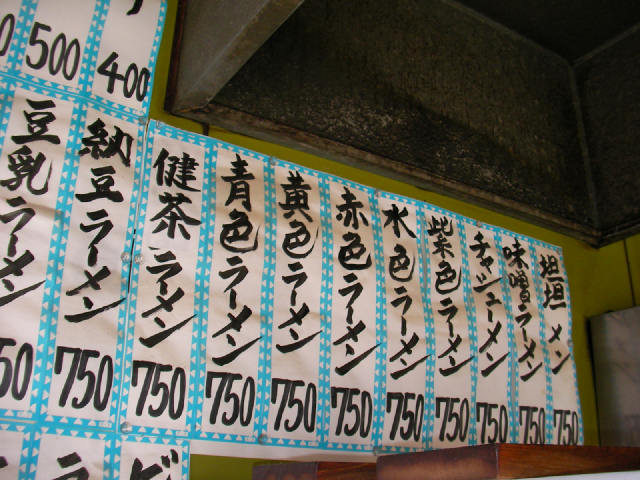 500
400
豆乳ラーメン
750
納豆ラーメン
750
健茶ラーメン
750
青色ラーメン
750
黄色ラーメン
750
赤色ラーメン
750
水色ラーメン
750
紫色ラーメン
750
チャシューメン
750
味噌ラーメン
750
坦坦メン
750